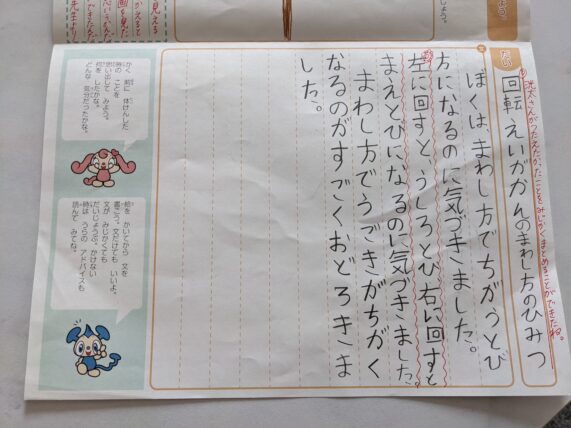 だい
回転えいがかんのまわし方のひみつ
さんがつたえたかったことをみじかくまとめることができたね。
ぼくは、まわし方でちがうとび
方になるのに気づきました。
左に回すと、うしろとび右に回すと
まえとびになるのに気づきました。
まわし方でうごきがちがく
なるのがすごくおどろきま
した。
かく 前に 体けんした
時の ことを
思い出して みよう。
何を したかな。
どんな 気分だったかな。
絵を かいてから 文を
書こう。文だけでも いいよ。
文が みじかくても
だいじょうぶ。かけない
時は うらの アドバイスも
読んで みてね。